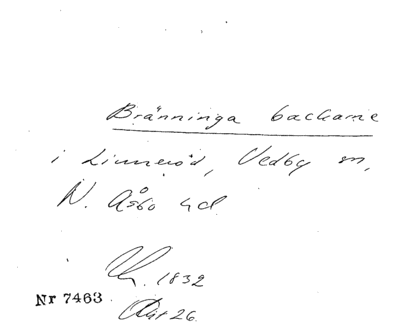 Bränninga backarne
i Linneröd, Vedby sn,
N. Åsbo hd
1832
Nr 7463
Akt 26